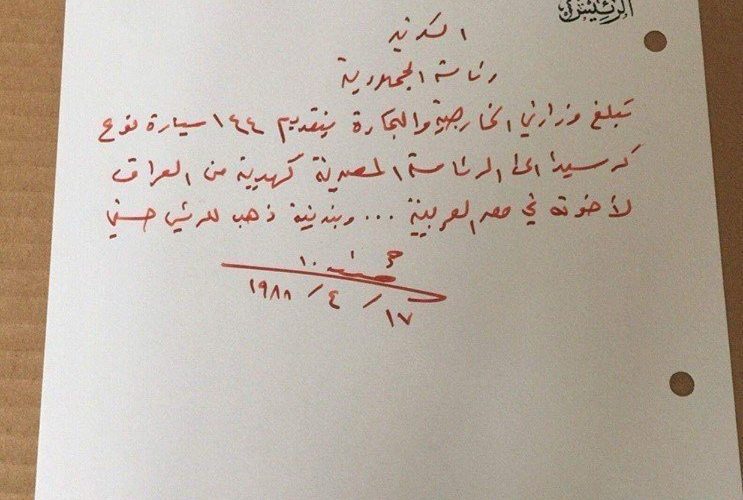 الرئيس
السكرتير
رئاسة الجمهورية
تبلغ وزارتي الخارجية والتجارة بتقديم ١٤٤ سيارة نوع
كرسيدا الى الرئاسة المصرية كهدية من العراق
لأخوته في مصر العربية ... وبندقية ذهب للرئيس حسني
١٧ / ٤ / ١٩٨٨